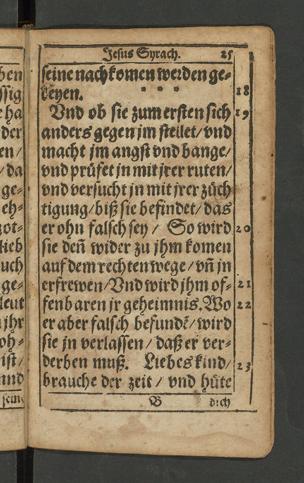 Jesus Syrach. 25
seine nachkomen werden ge-
deyen. * * * 18
Vnd ob sie zum ersten sich 19
anders gegen jm stellet/vnd
macht jm angst vnd bange/
vnd prüfet jn mit jrer ruten/
vnd versucht jn mit jrer züch
tigung/biß sie befindet/das
er ohn falsch sey/ So wird 20
sie deñ wider zu jhm komen
auf dem rechten wege/vñ jn
erfrewen/Vnd wird jhm of- 21
fenbaren jr geheimnis.Wo 22
er aber falsch befundẽ/wird
sie jn verlassen/daß er ver-
derben muß. Liebes kind/ 23
brauche der zeit/ vnd hüte
B dich